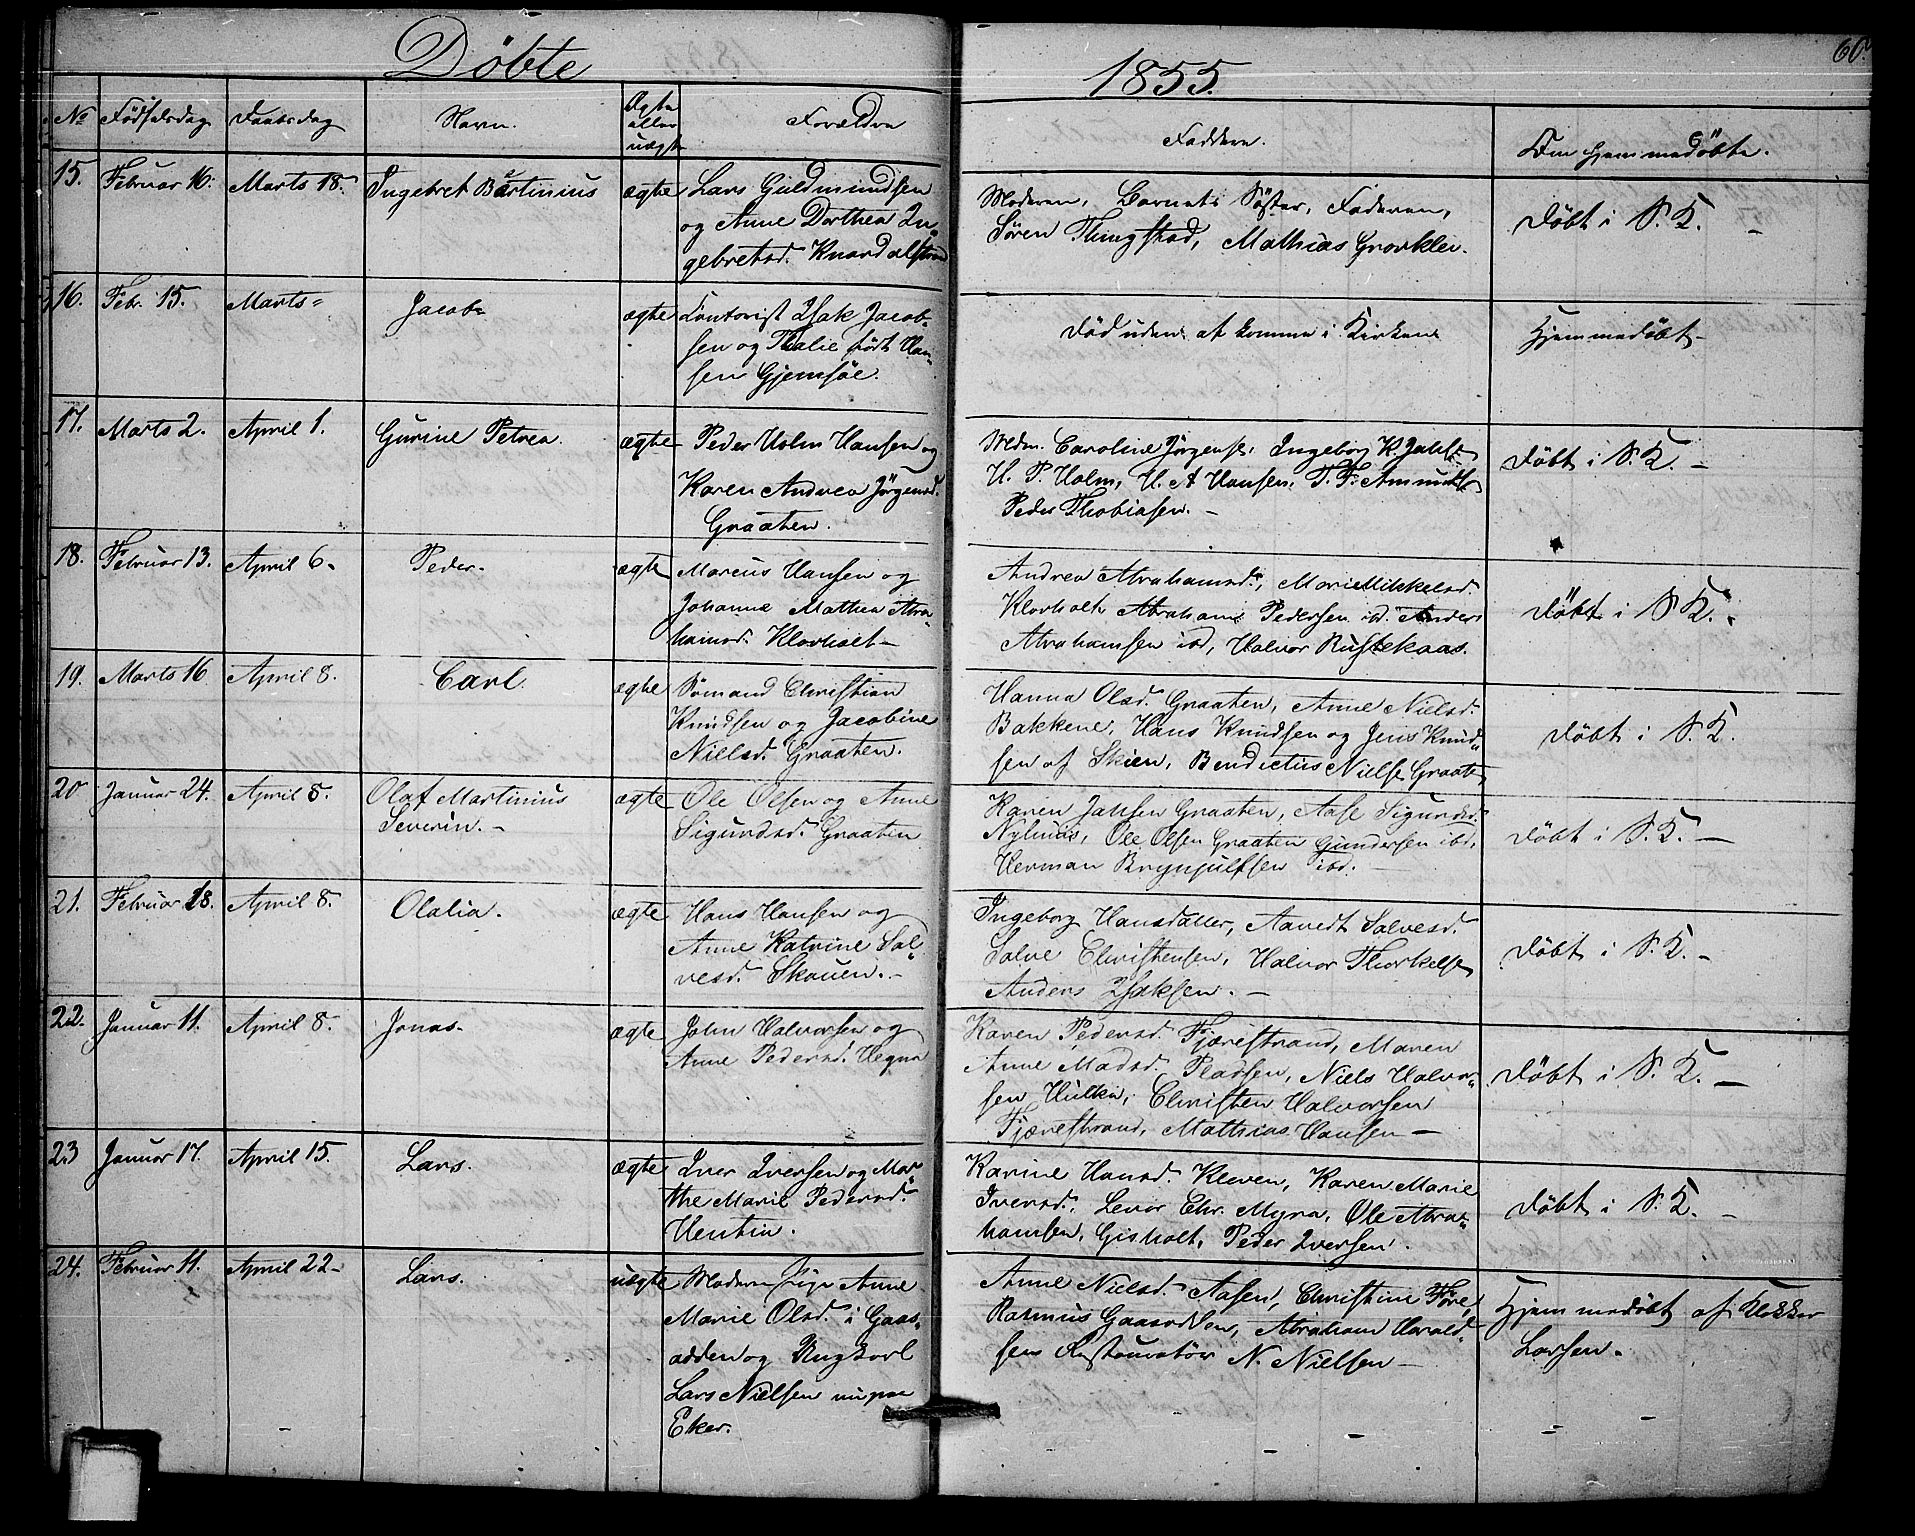 Döbte 1855. 60.
No Födselsdag Daabsdag Navn. Ægte eller uægte Forældre Faddere. Om hjemmedöbte.
15. Februar 16. Marts 18. Ingebret Bertinius ægte Lars Guldmundsen
og Anne Dorthea In-
gebretsd. Knardalstrand
Moderen, Barnets Söster, Faderen,
Sören Thingstad, Mathias Grovklev.
Döbt i S. K. –
16. Feb. 15. Marts – Jacob – ægte Contorist Isak Jacob-
sen og Thalie födt Han-
sen Gjemsöe.
Död uden at komme i Kirken
Hjemmedöbt –
17. Marts 2. April 1. Gurine Petrea. ægte Peder Holm Hansen og
Karen Andrea Jörgensd.
Graaten.
Mdm. Caroline Jörgens, Ingeborg K. Jahls
H. P. Holm, H. A Hansen, T. F. Amunds
Peder Thobiasen. –
Döbt i S. K. –
18. Februar 13. April 6 – Peder – ægte Marcus Hansen og
Johanne Mathea Abra-
hamsd. Klovholt –
Andrea Abrahamsd., Marie Mikkelsd.
Klovholt, Abraham Pedersen ibd. Anders
Abrahamsen ibd, Halvor Rustekaas.
Döbt i S. K.
19. Marts 16 April 8. Carl. ægte Sömand Christian
Knudsen og Jacobine
Nielsd. Graaten.
Hanna Olsd. Graaten, Anne Nielsd.
Bakkene, Hans Knudsen og Jens Knud-
sen af Skien, Bendictus Niels Graaten
Döbt i S. K.
20 Januar 24. April 8. Olaf Martinius
Severin. –
ægte Ole Olsen og Anne
Sigundsd. Graaten
Karen Jansen Graaten, Aase Sigundsd.
Nylunds, Ole Olsen Graaten Gundersen ibd,
Herman Brynjulfsen ibd. –
Döbt i S. K. –
21. Februar 18. April 8. Olalia. ægte Hans Hansen og
Anne Katrine Sal-
vesd. Skouen. –
Ingeborg Hansdatter, Aavedt Salvesd.
Salve Christensen, Halvor Thorkelse
Anders Isaksen. –
Döbt i S. K. –
22. Januar 11. April 8. Jonas – ægte John Halvorsen og
Anne Pedersd. Hegna
Karen Pedersd. Fjærestrand, Maren
Anne Madsd. Pladsen, Niels Halvor-
sen Hulka, Christen Halvorsen
Fjærestrand, Mathias Hansen –
Döbt i S. K. –
23 Januar 17. April 15. Lars. ægte Iver Iversen og Mar-
the Marie Pedersd.
Hentin.
Karine Hansd. Kleven, Karen Marie
Iversd., Levor Chr. Myra, Ole Abra-
hamsen, Gisholt, Peder Iversen.
Döbt i S. K. –
24. Februar 11. April 22 – Lars. uægte Moderen Pige Anne
Marie Olsd. i Gaas-
odden og Ungkarl
Lars Nielsen nu paa
Eker.
Anne Nielsd. Aasen, Christine Tore,
Rasmus Gaasodden, Abraham Harald-
sen Restauratör N. Nielsen –
Hjemmedöbt af Klokker
Larsen.